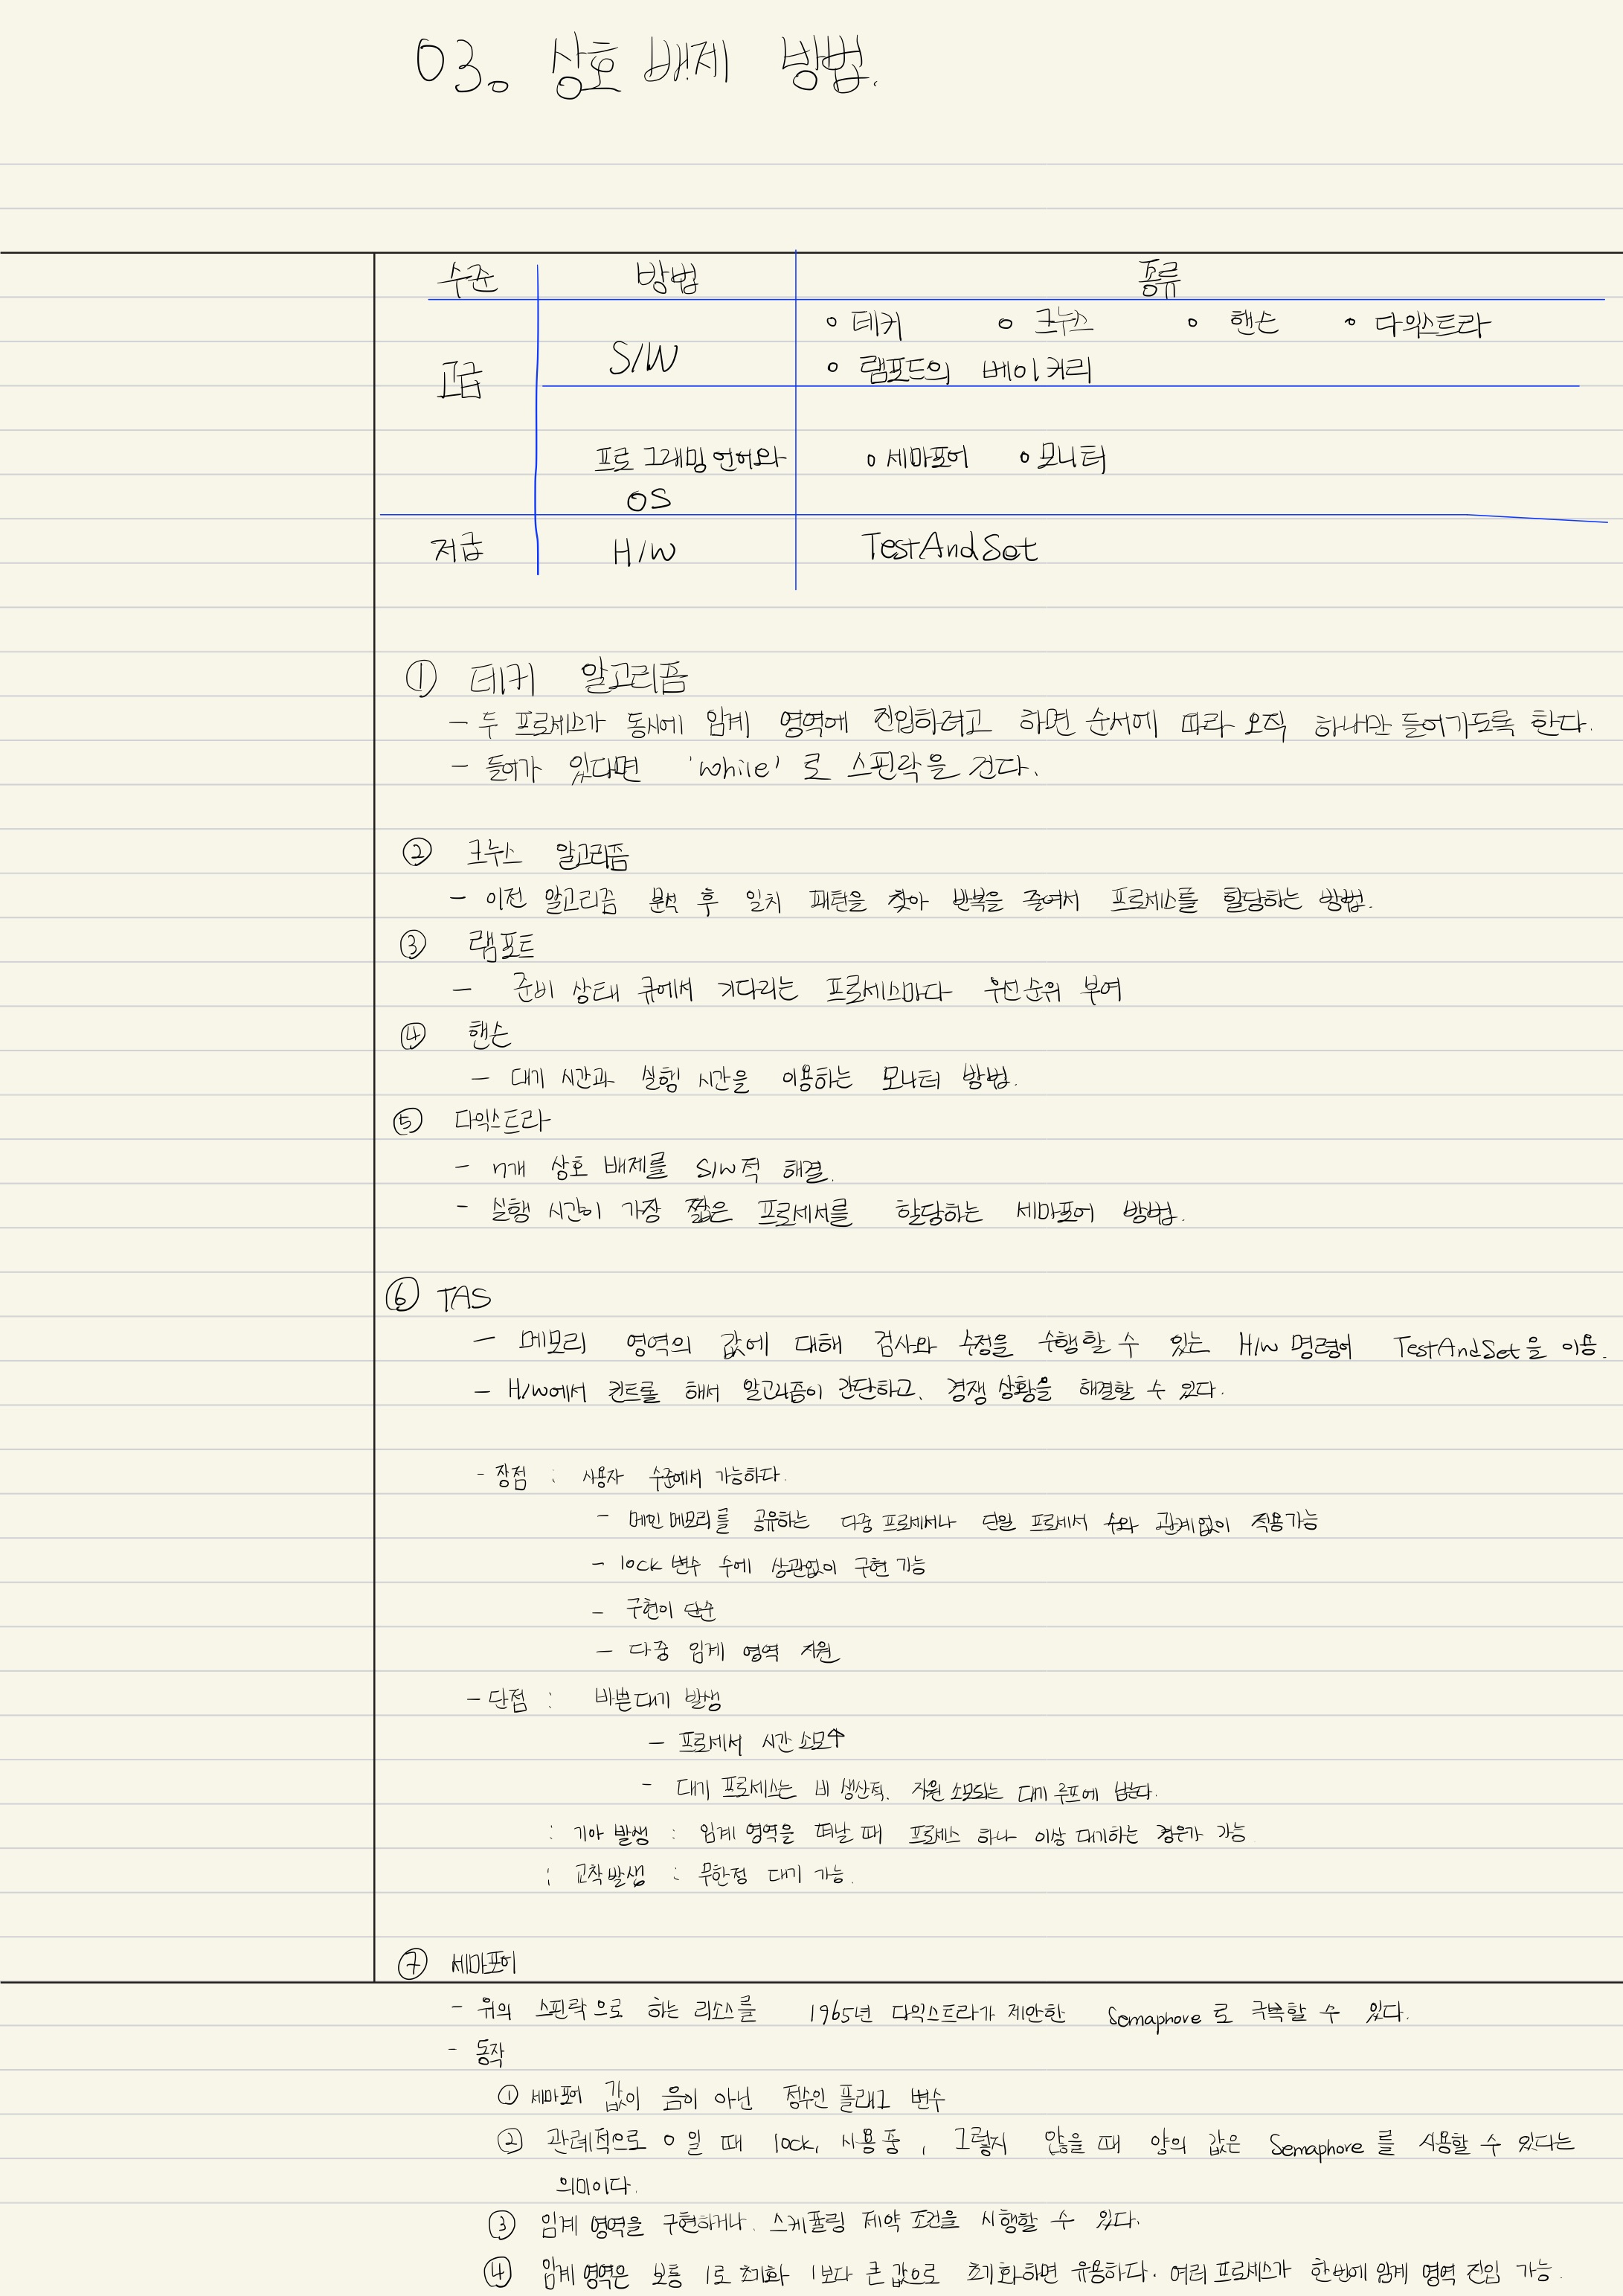 03. 상호 배제 방법.
수준 방법 종류
고급 S/W ∘ 데커 ∘ 크누스 ∘ 핸슨 ∘ 다익스트라
∘ 램포드의 베이커리
프로그래밍 언어와 ∘ 세마포어 ∘ 모니터
OS
저급 H/W TestAndSet
① 데커 알고리즘
- 두 프로세스가 동시에 임계 영역에 진입하려고 하면 순서에 따라 오직 하나만 들어가도록 한다.
- 들어가 있다면 'while'로 스핀락을 건다.
② 크누스 알고리즘
- 이전 알고리즘 분석 후 일치 패턴을 찾아 반복을 줄여서 프로세스를 할당하는 방법.
③ 램포트
- 준비 상태 큐에서 기다리는 프로세스마다 우선순위 부여
④ 핸슨
- 대기 시간과 실행 시간을 이용하는 모니터 방법.
⑤ 다익스트라
- n개 상호 배제를 S/W적 해결.
- 실행 시간이 가장 짧은 프로세서를 할당하는 세마포어 방법.
⑥ TAS
- 메모리 영역의 값에 대해 검사와 수정을 수행할 수 있는 H/W 명령어 TestAndSet을 이용.
- H/W에서 컨트롤 해서 알고리즘이 간단하고, 경쟁 상황을 해결할 수 있다.
- 장점 : 사용자 수준에서 가능하다.
- 메인 메모리를 공유하는 다중 프로세서나 단일 프로세서 수와 관계없이 적용가능
- lock 변수 수에 상관없이 구현 가능
- 구현이 단순
- 다중 임계 영역 지원
- 단점 : 바쁜대기 발생
- 프로세서 시간 소모↑
- 대기 프로세스는 비 생산적, 자원 소모되는 대기 루프에 남는다.
: 기아 발생 : 임계 영역을 떠날 때 프로세스 하나 이상 대기하는 경우가 가능
: 교착발생 : 무한정 대기 가능.
⑦ 세마포어
- 위의 스핀락으로 하는 리소스를 1965년 다익스트라가 제안한 Semaphore로 극복할 수 있다.
- 동작
① 세마포어 값이 음이 아닌 정수인 플래그 변수
② 관례적으로 0일 때 lock, 사용중, 그렇지 않을 때 양의 값은 Semaphore를 사용할 수 있다는
의미이다.
③ 임계 영역을 구현하거나, 스케쥴링 제약 조건을 시행할 수 있다.
④ 임계 영역은 보통 1로 초기화 1보다 큰 값으로 초기화하면 유용하다. 여러 프로세스가 한번에 임계 영역 진입 가능.